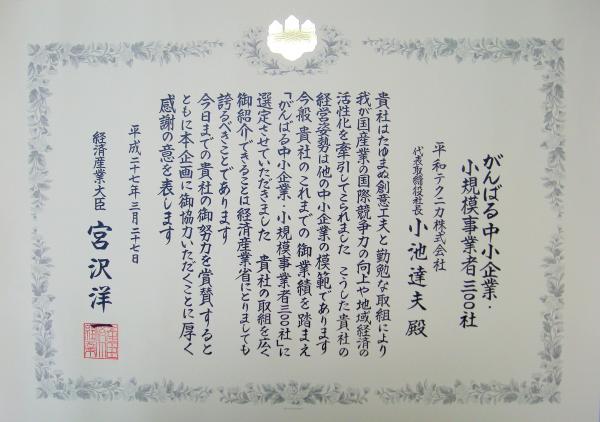 がんばる中小企業・
小規模事業者三〇〇社
平和テクニカ株式会社
代表取締役社長 小池達夫 殿
貴社はたゆまぬ創意工夫と勤勉な取組により
我が国産業の国際競争力の向上や地域経済の
活性化を牽引してこられました こうした貴社の
経営姿勢は他の中小企業の模範であります
今般貴社のこれまでの御業績を踏まえ
「がんばる中小企業・小規模事業者三〇〇社」に
選定させていただきました 貴社の取組を広く
御紹介できることは経済産業省にとりましても
誇るべきことであります
今日までの貴社の御努力を賞賛するると
ともに本企画に御協力いただくことに厚く
感謝の意を表します
平成二十七年三月二十七日
経済産業大臣 宮沢洋一